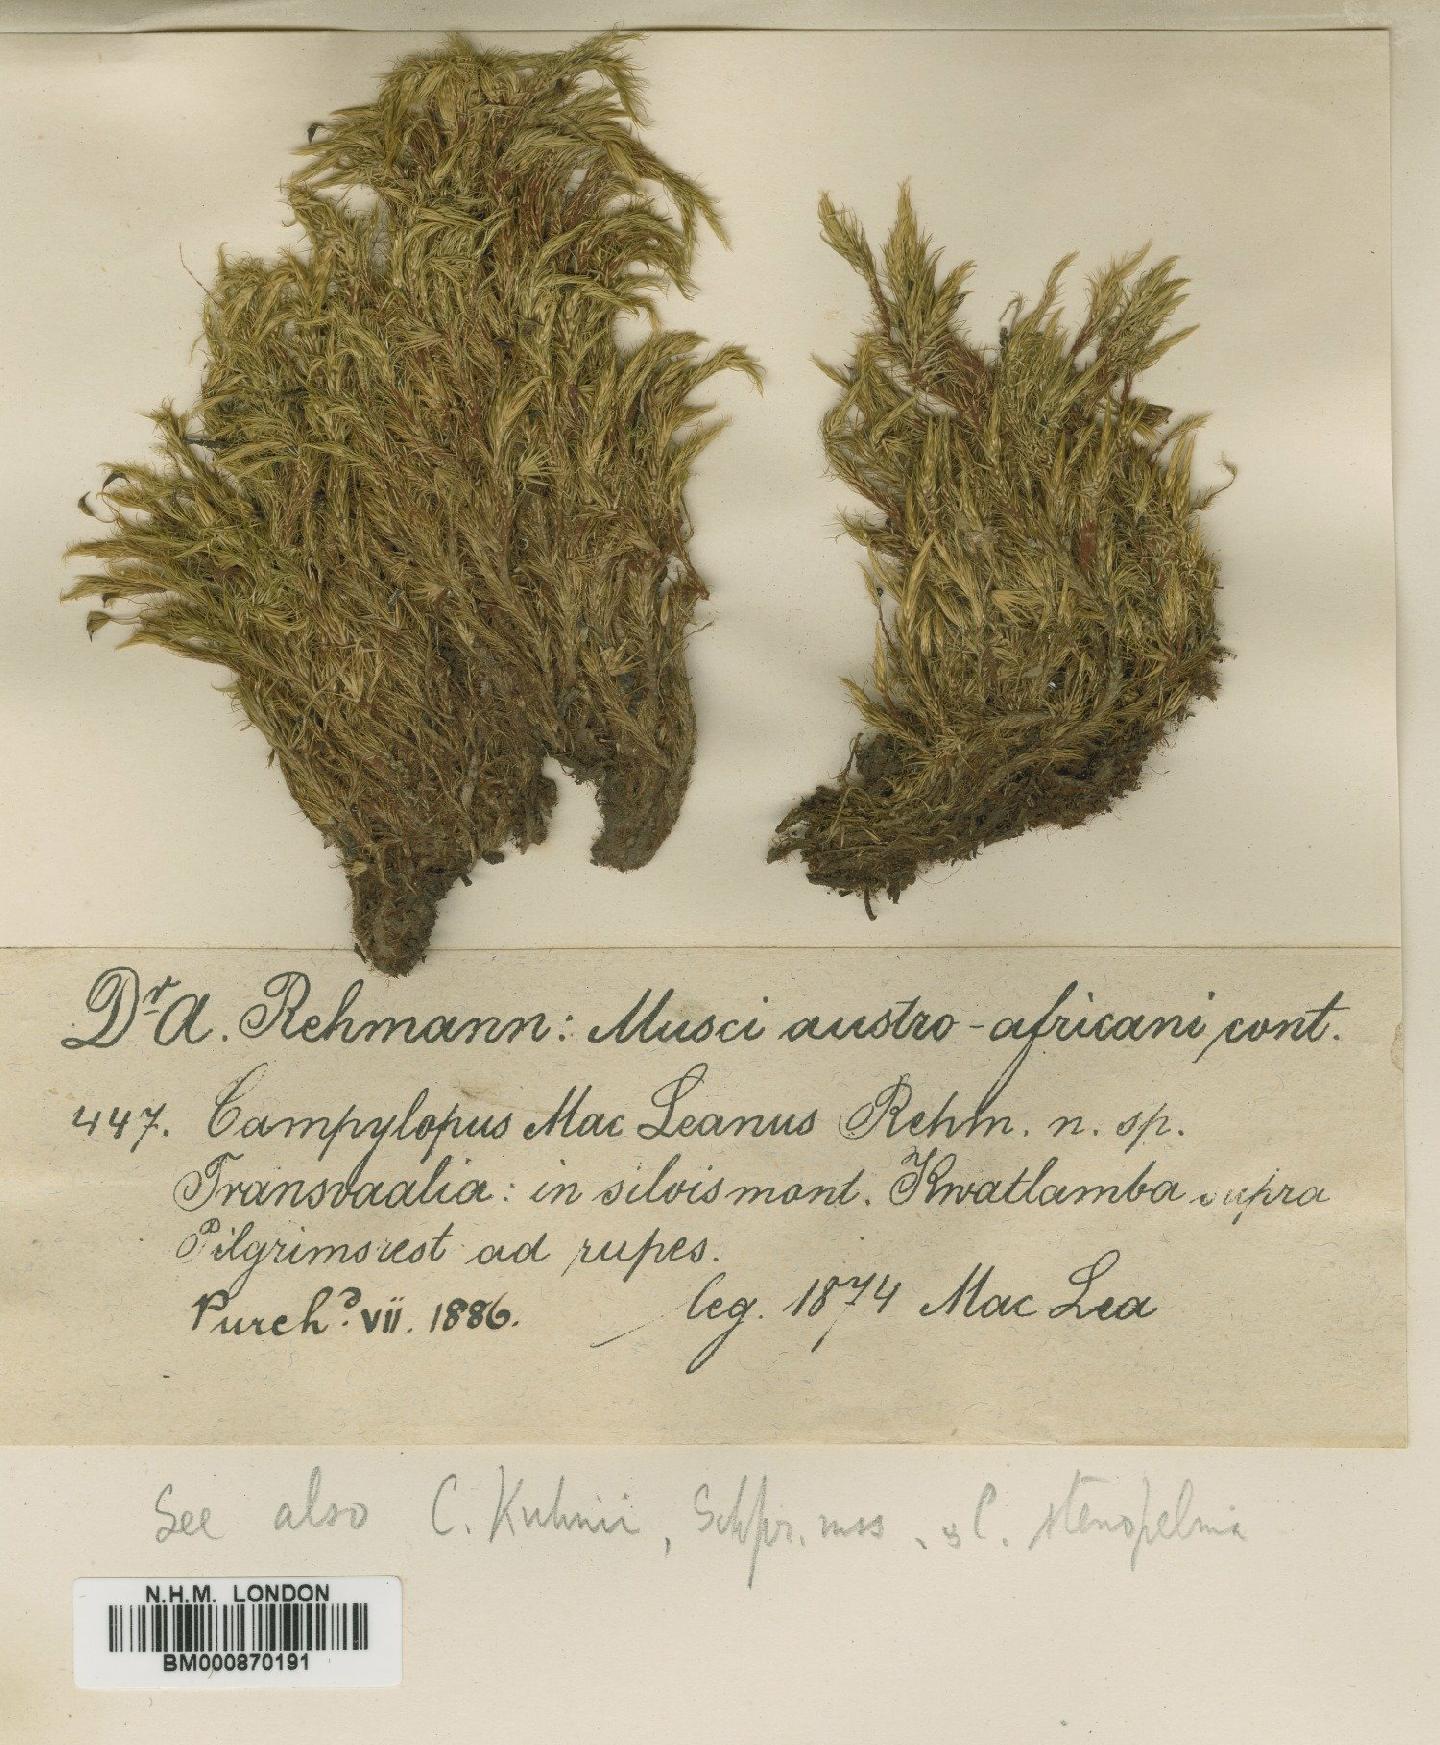 Dr A. Rehmann: Musci austro-africani, cont.
447. Campylopus Mac Leanus Rehm. n. sp.
Transvaalia: in silvis mont. Kwatlamba supra
Pilgrimsrest ad rupes.
Purchd. vii. 1886. leg. 1874 Mac Lea
See also C. Kuhnii, Schpr. mss. & C. stenopelma
N.H.M. LONDON
BM000870191